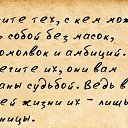 ите тех, с кем мож
ь собой без масок,
омолвок и амбиций.
егите их, они вам
аны судьбой. Ведь в
ей жизни их – лишь
ницы.